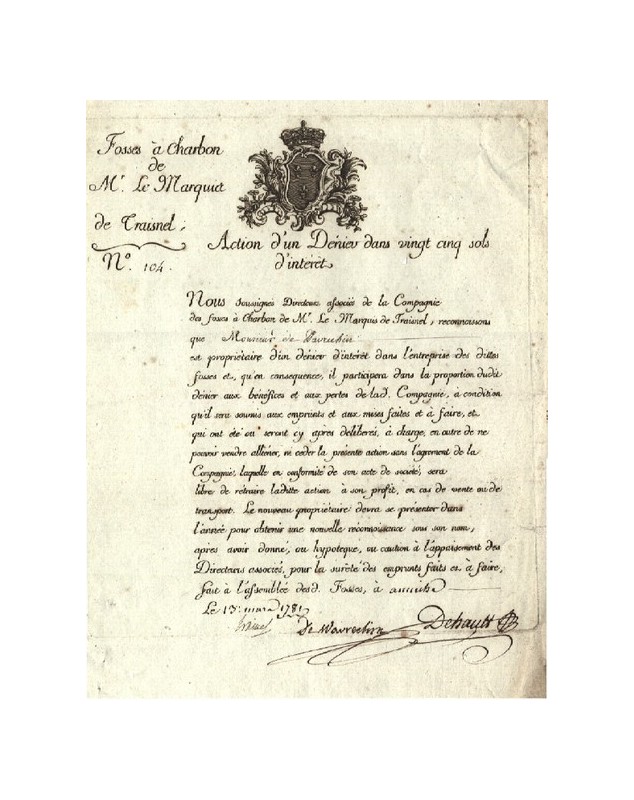 Fosses à Charbon
de
Mr. Le Marquiet
de Traisnel;
No. 104.
Action d'un Dénier dans vingt cinq sols
d'intérêt
Nous Soussignés Directeurs associés de la Compagnie
des fosses à Charbon de Mr. Le Marquis de Traisnel, reconnoissons
que Monsieur de Wavrechin
est propriétaire d'un dénier d'intérêt dans l'entreprise des dittes
fosses et, qu'en conséquence, il participera dans la proportion dudit
dénier aux bénéfices et aux pertes de lad. Compagnie, à condition
qu'il sera soumis aux emprunts et aux mises faites et à faire, et
qui ont été ou seront cy après délibérés, à charge, en outre de ne
pouvoir vendre alliéner, ni céder la présente action sans l'agrément de la
Compagnie, laquelle en conformité de son acte de société, sera
libre de retraire laditte action à son profit, en cas de vente ou de
transport. Le nouveau propriétaire devra se présenter dans
l'année pour obtenir une nouvelle reconnoissance sous son nom,
après avoir donné, ou hypoteque, ou caution à l'appaisement des
Directeurs associés, pour la sureté des emprunts faits et à faire,
fait à l'assemblée desd. Fosses, à aniche
Le 13 mars 1781
De Wavrechin Dehault